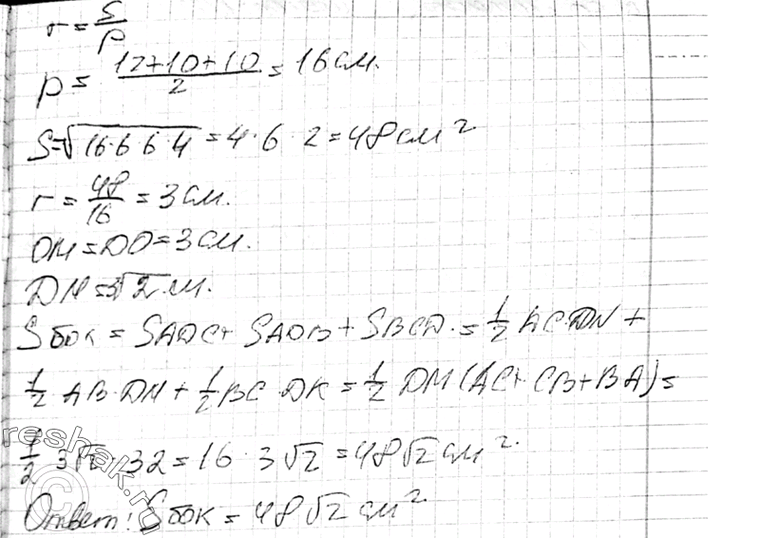 r = S/p
p = (12+10+10)/2 = 16 см.
S = √(16·6·6·4) = 4·6·2 = 48 см²
r = 48/16 = 3 см.
OM = DO = 3 см.
DM = 3√2 см.
Sбок = SADC + SADB + SBCD = 1/2 AC·DN +
1/2 AB·DM + 1/2 BC·DK = 1/2 DM(AC + CB + BA) =
1/2 3√2·32 = 16·3√2 = 48√2 см².
Ответ: Sбок = 48√2 см²
reshak.ru